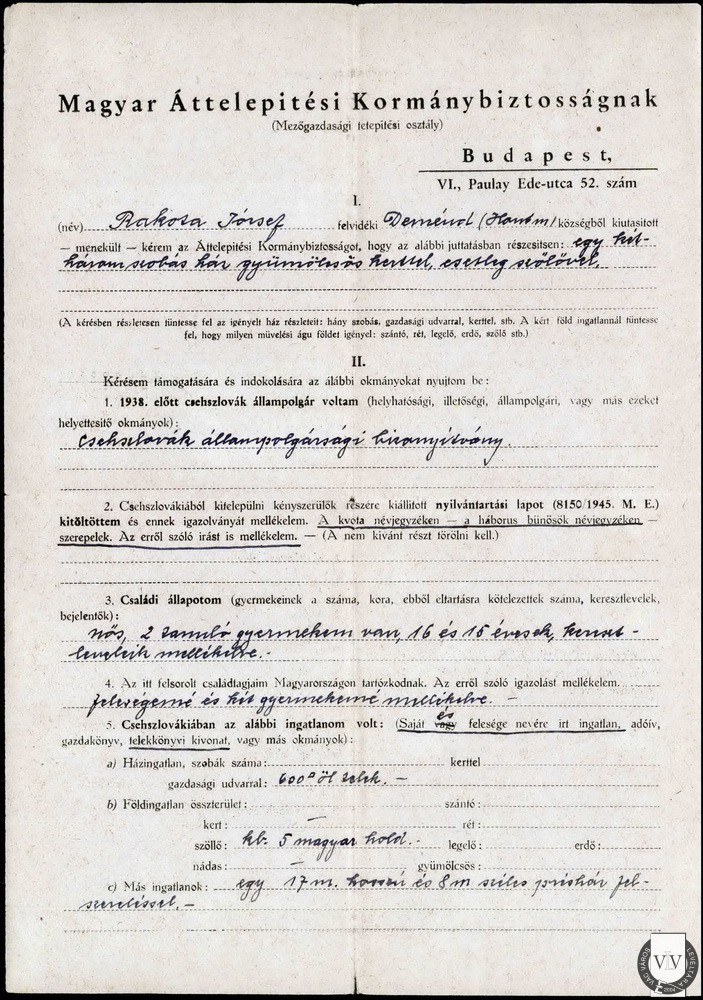 Magyar Áttelepitési Kormánybiztosságnak
(Mezőgazdasági telepitési osztály)
Budapest,
VI., Paulay Ede-utca 52. szám
I.
(név) Rakota József felvidéki Deménd (Hont m) községből kiutasított
— menekült — kérem az Áttelepitési Kormánybiztosságot, hogy az alábbi juttatásban részesitsen: egy két-
három szobás ház gyümölcsös kerttel, esetleg szőlővel.
(A kérésben részletesen tüntesse fel az igényelt ház részleteit: hány szobás, gazdasági udvarral, kerttel, stb. A kért föld ingatlannál tüntesse
fel, hogy milyen müvelési águ földet igényel: szántó, rét, legelő, erdő, szőlő stb.)
II.
Kérésem támogatására és indokolására az alábbi okmányokat nyujtom be:
1. 1938. előtt csehszlovák állampolgár voltam (helyhatósági, illetőségi, állampolgári, vagy más ezeket
helyettesitő okmányok):
Csehszlovák állampolgársági bizonyítvány.
2. Csehszlovákiából kitelepülni kényszerülők részére kiállitott nyilvántartási lapot (8150/1945. M. E.)
kitöltöttem és ennek igazolványát mellékelem. A kvota névjegyzéken — a háborus bünösök névjegyzéken —
szerepelek. Az erről szóló irást is mellékelem. — (A nem kivánt részt törölni kell.)
3. Családi állapotom (gyermekeinek a száma, kora, ebből eltartásra kötelezettek száma, keresztlevelek,
bejelentők):
nős, 2 tanuló gyermekem van, 16 és 15 évesek, kereszt-
leveleik mellékelve.-
4. Az itt felsorolt családtagjaim Magyarországon tartózkodnak. Az erről szóló igazolást mellékelem.
feleségemé és két gyermekemé mellékelve. —
5. Csehszlovákiában az alábbi ingatlanom volt: (Saját és vagy felesége nevére irt ingatlan, adóív,
gazdakönyv, telekkönyvi kivonat, vagy más okmányok):
a) Házingatlan, szobák száma: kerttel
gazdasági udvarral: 600□ öl telek. —
b) Földingatlan összterület: szántó:
kert: — rét:
szöllő: kb. 5 magyar hold.- legelő: erdő:
nádas: — gyümölcsös:
c) Más ingatlanok: egy 17 m. hosszú és 8 m széles présház fel-
szereléssel. —
VÁC VÁROS LEVÉLTÁRA
VV
2004